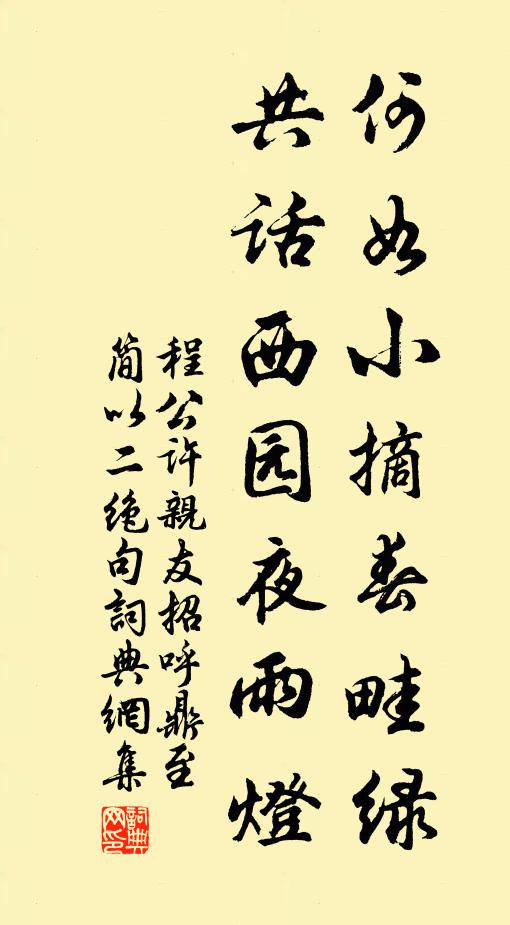 何如小摘春畦绿
共话西园夜雨燈
程公许親友招呼鼎至
简以二绝句詞典網集
詞典网印